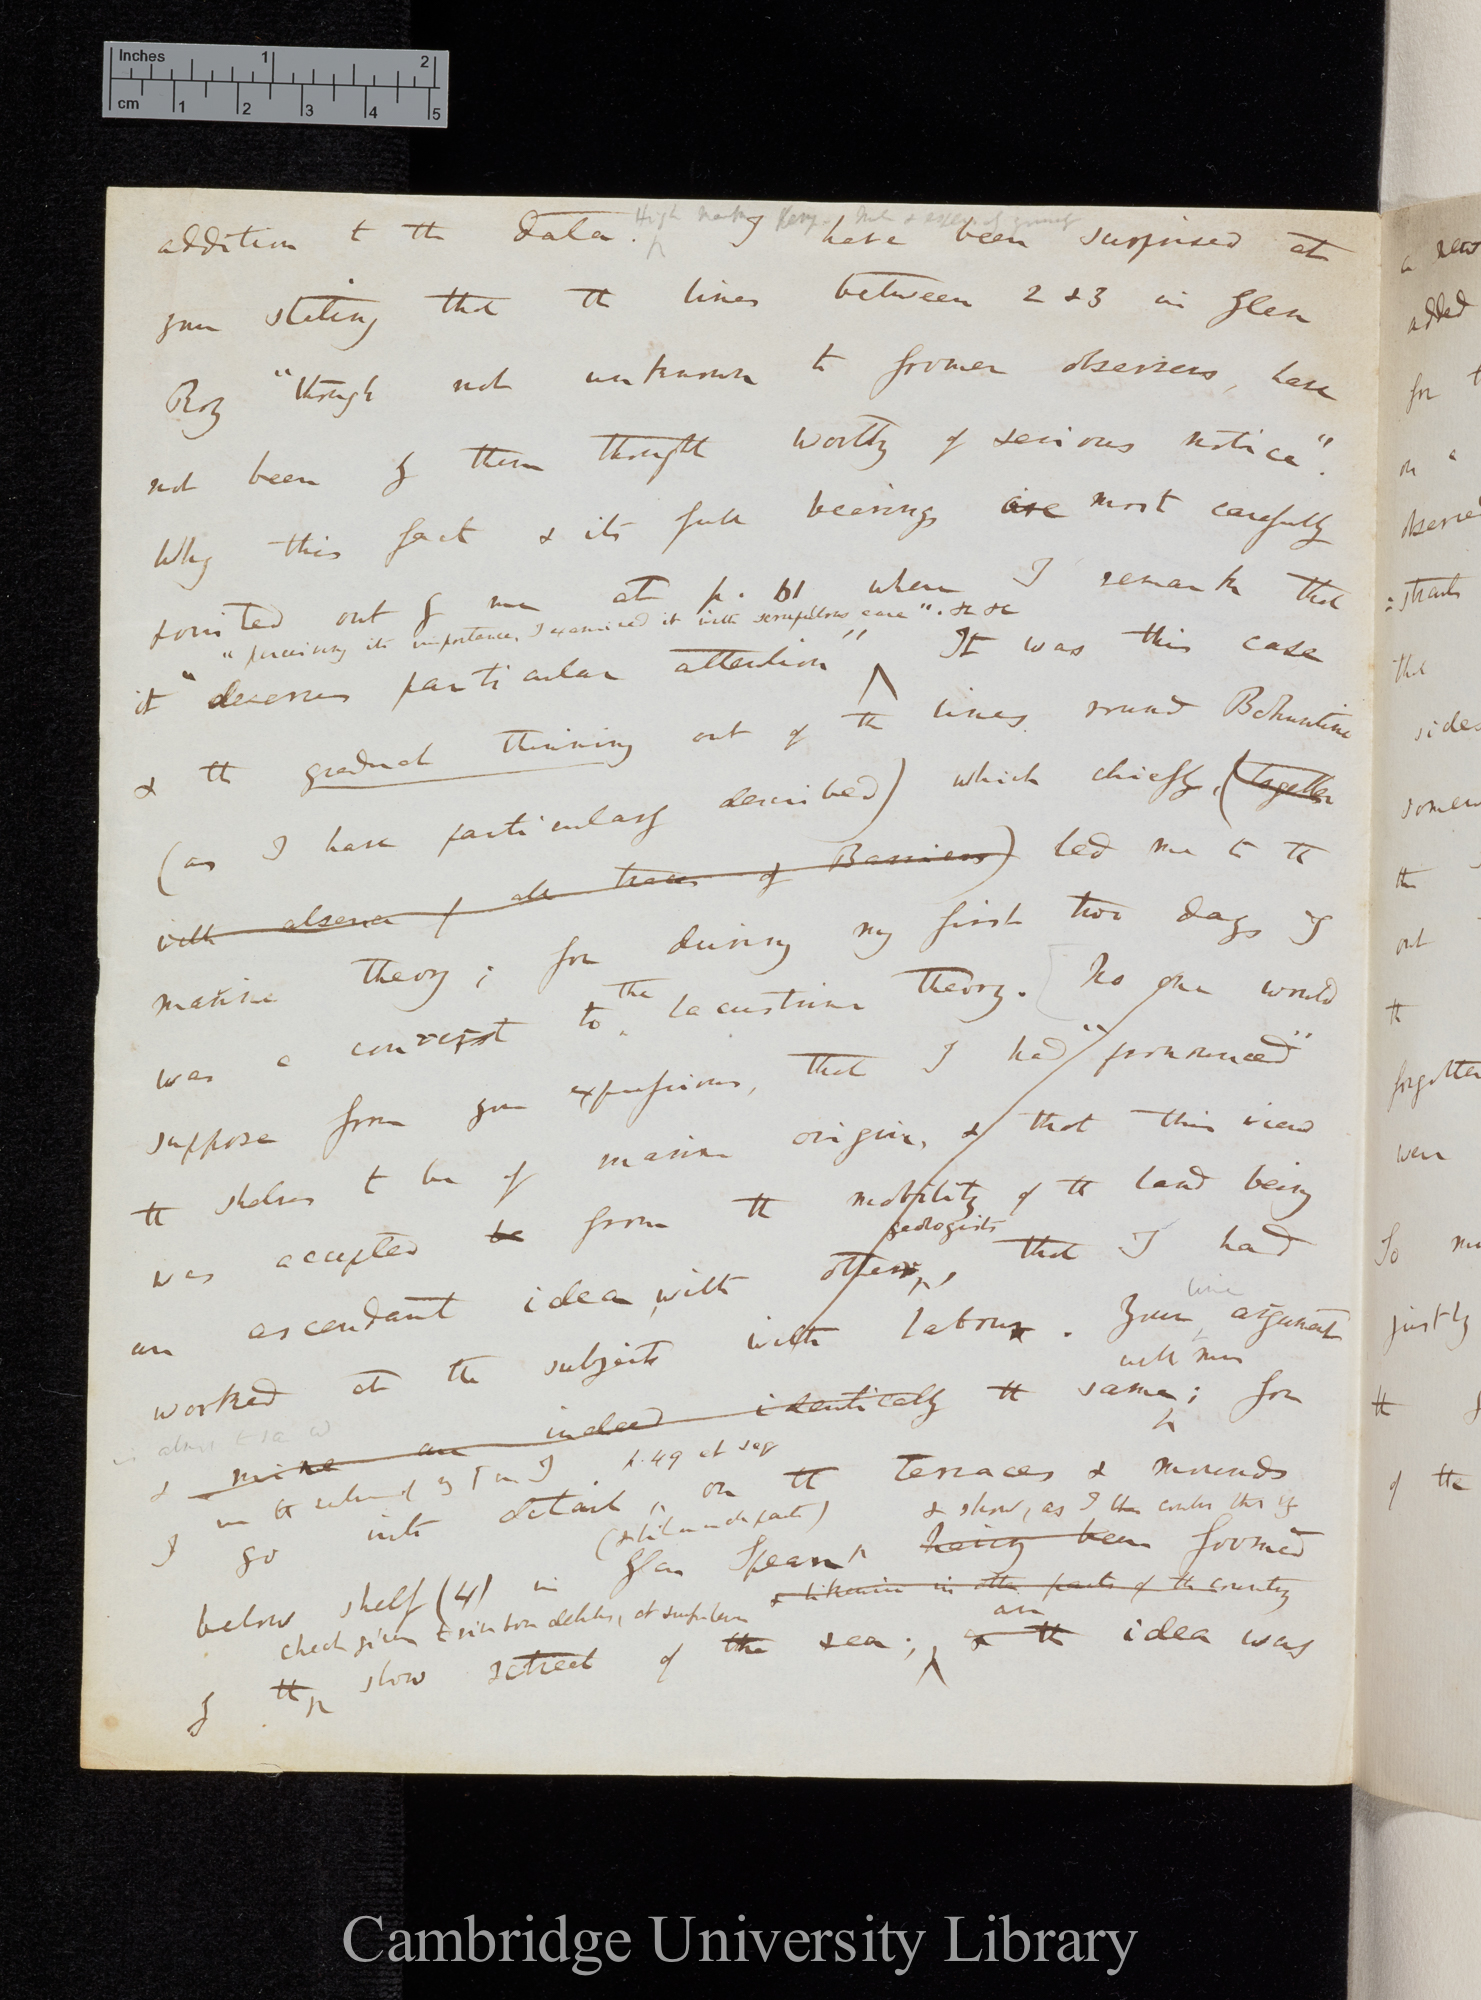 Inches 1 2
cm 1 2 3 4 5
addition to the data. I have been surprised at
your stating that the lines between 2 & 3 in Glen
Roy "though not unknown to former observers, have
not been by them thought worthy of serious notice".
Why this fact & its full bearings are most carefully
pointed out by me at p. 61 where I remark that
"perceiving its importance, I examined it with scrupulous care". &c &c
it "deserves particular attention" It was this case
& the gradual thinning out of the lines round Bohuntine
(as I have particularly described) which chiefly, (together
with absence of all traces of Barriers) led me to the
marine theory; for during my first two days I
was a convert to the lacustrine theory. No one would
suppose from your expressions, that I had "pronounced"
the shelves to be of marine origin, & that this view
was accepted be from the mobility of the land being
geologists
an ascendant idea with others, that I had
line
worked at the subject with labour. Your argument
with mine
& mine are indeed identically the same; for
p. 49 et seq
I go into detail, on the terraces & mounds
& show, as I then
below shelf (4) in Glen Spean having been formed
& likewise in other parts of the country
check given to river born detritus, at
an
by the slow retreat of the sea; & the idea was
a new
added
for
on
observed
that
sides
the
out
the
forgotten
were
So
justly
the
of the
Cambridge University Library